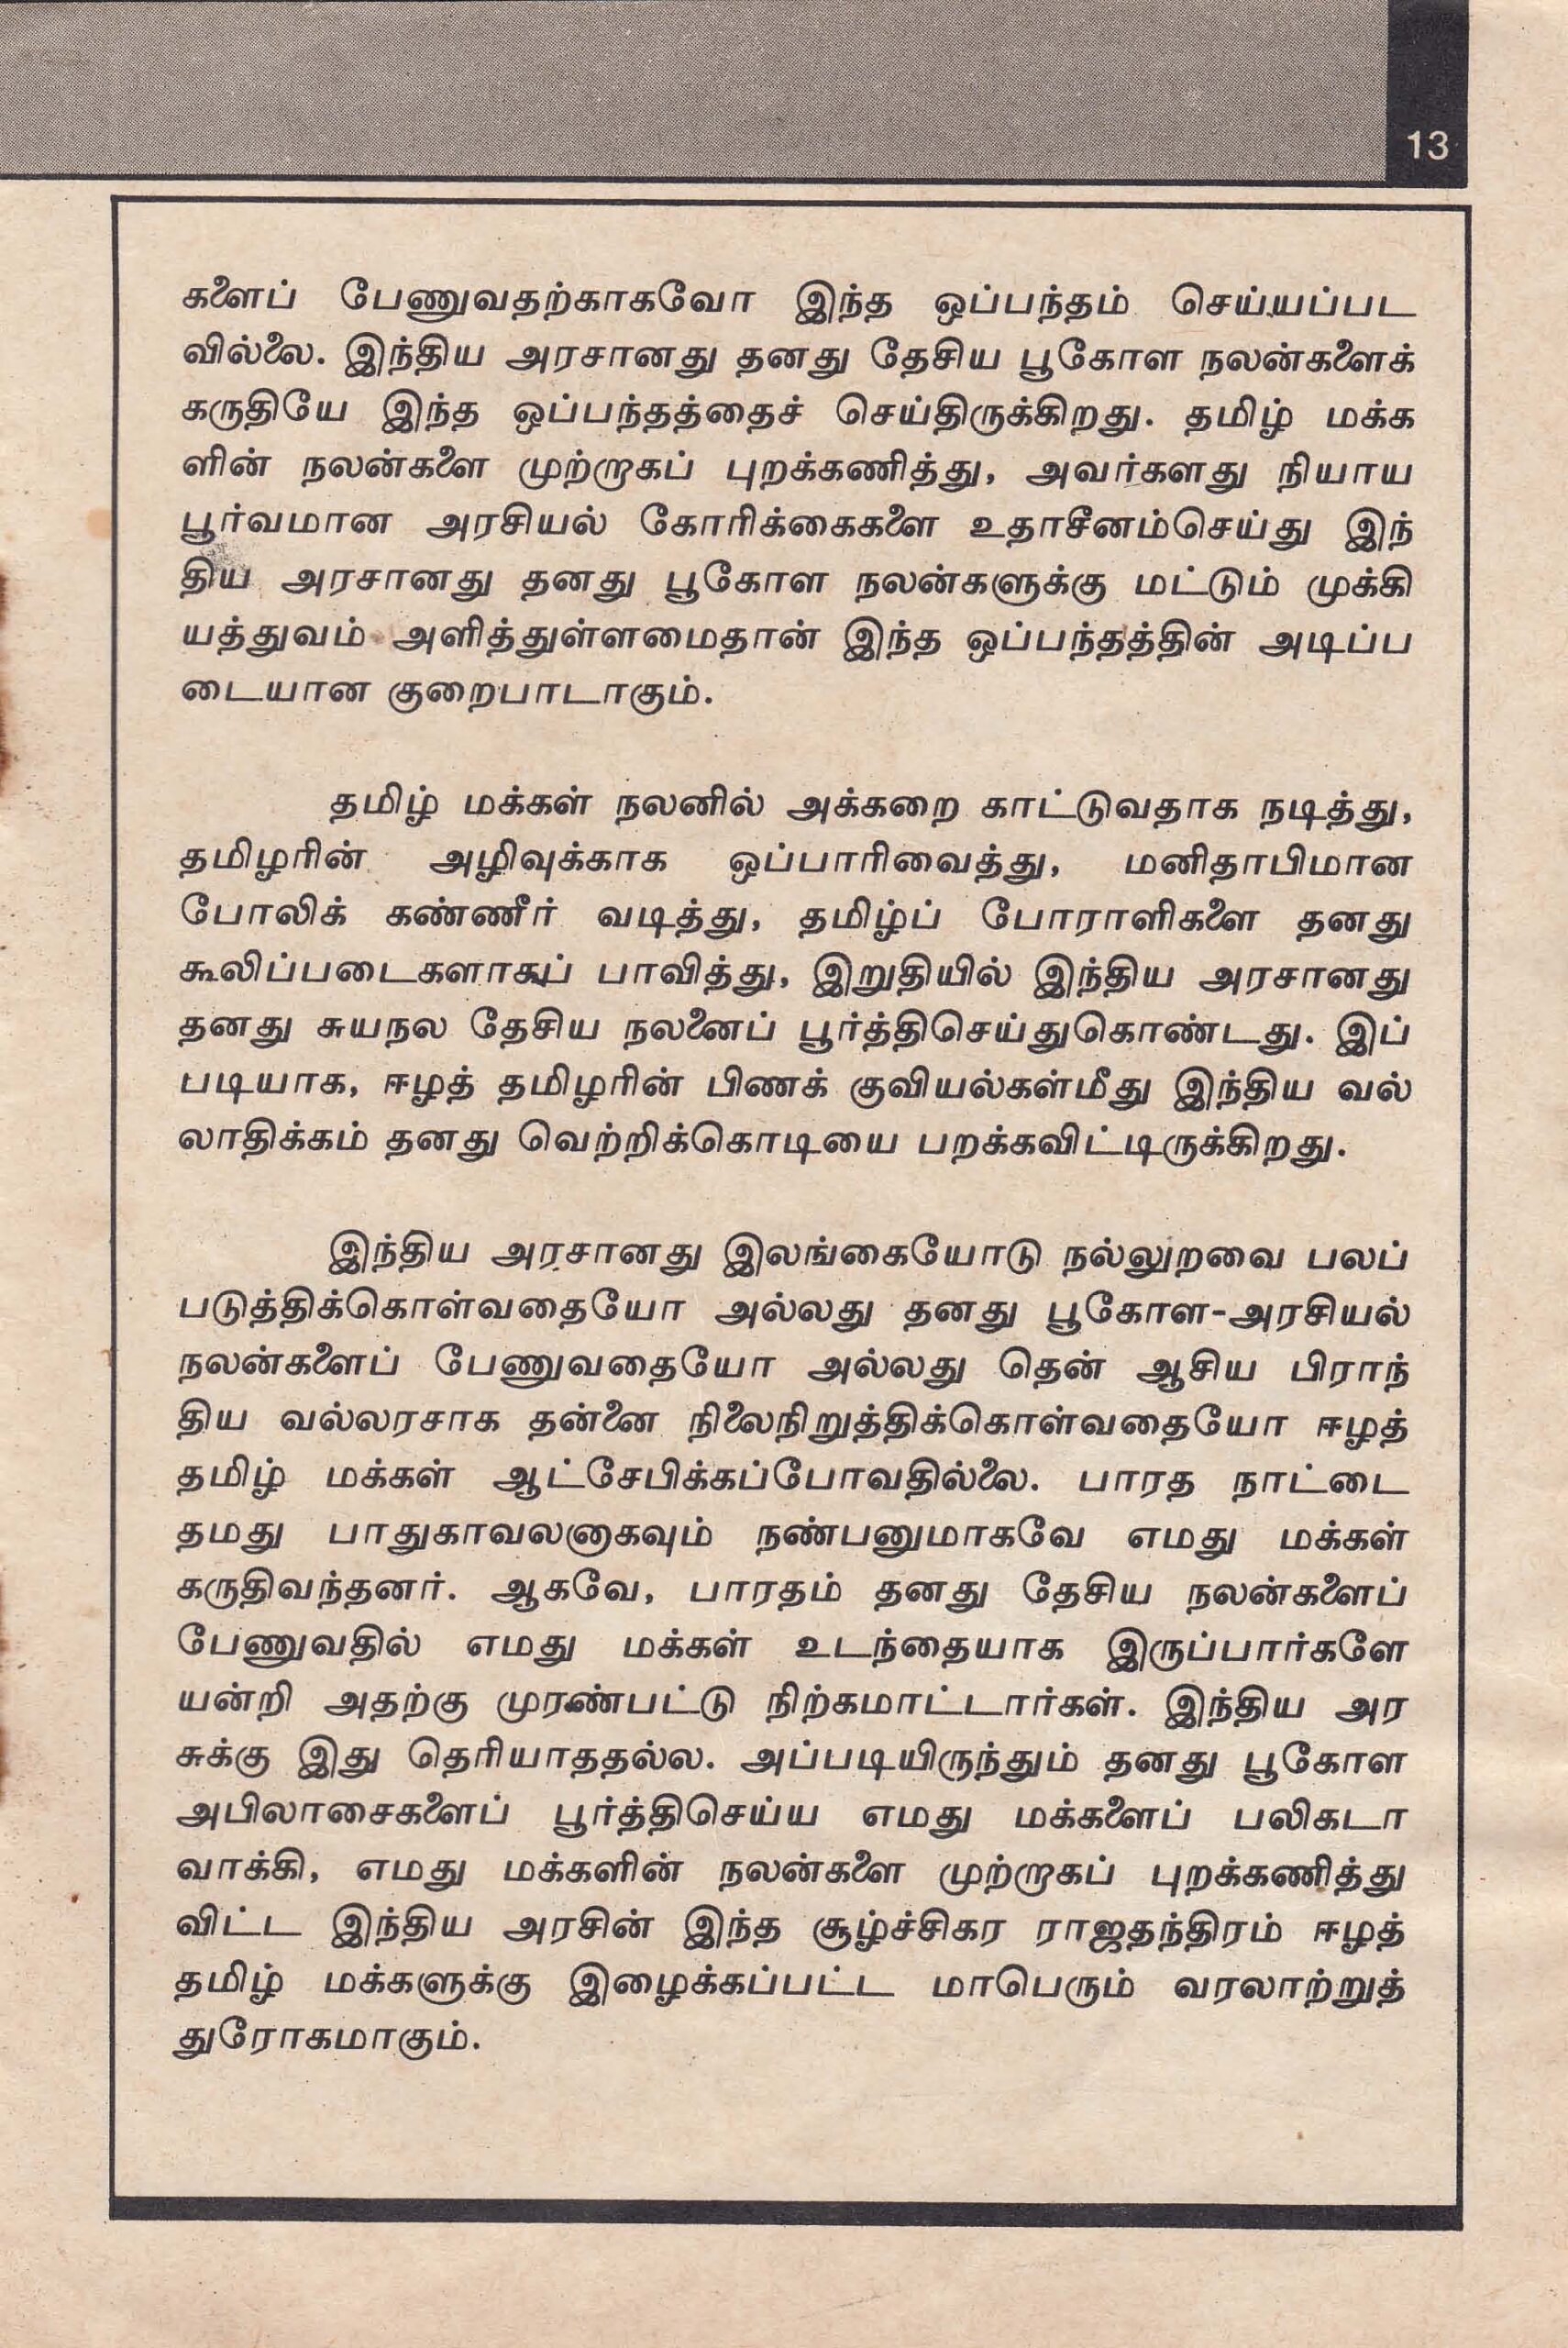 13
களைப் பேணுவதற்காகவோ இந்த ஒப்பந்தம் செய்யப்பட
வில்லை. இந்திய அரசானது தனது தேசிய பூகோள நலன்களைக்
கருதியே இந்த ஒப்பந்தத்தைச் செய்திருக்கிறது. தமிழ் மக்க
ளின் நலன்களை முற்றாகப் புறக்கணித்து, அவர்களது நியாய
பூர்வமான அரசியல் கோரிக்கைகளை உதாசீனம்செய்து இந்
திய அரசானது தனது பூகோள நலன்களுக்கு மட்டும் முக்கி
யத்துவம் அளித்துள்ளமைதான் இந்த ஒப்பந்தத்தின் அடிப்ப
டையான குறைபாடாகும்.
தமிழ் மக்கள் நலனில் அக்கறை காட்டுவதாக நடித்து,
தமிழரின் அழிவுக்காக ஒப்பாரிவைத்து, மனிதாபிமான
போலிக் கண்ணீர் வடித்து, தமிழ்ப் போராளிகளை தனது
கூலிப்படைகளாகப் பாவித்து, இறுதியில் இந்திய அரசானது
தனது சுயநல தேசிய நலனைப் பூர்த்திசெய்துகொண்டது. இப்
படியாக, ஈழத் தமிழரின் பிணக் குவியல்கள்மீது இந்திய வல்
லாதிக்கம் தனது வெற்றிக்கொடியை பறக்கவிட்டிருக்கிறது.
இந்திய அரசானது இலங்கையோடு நல்லுறவை பலப்
படுத்திக்கொள்வதையோ அல்லது தனது பூகோள-அரசியல்
நலன்களைப் பேணுவதையோ அல்லது தென் ஆசிய பிராந்
திய வல்லரசாக தன்னை நிலைநிறுத்திக்கொள்வதையோ ஈழத்
தமிழ் மக்கள் ஆட்சேபிக்கப்போவதில்லை. பாரத நாட்டை
தமது பாதுகாவலனாகவும் நண்பனுமாகவே எமது மக்கள்
கருதிவந்தனர். ஆகவே, பாரதம் தனது தேசிய நலன்களைப்
பேணுவதில் எமது மக்கள் உடந்தையாக இருப்பார்களே
யன்றி அதற்கு முரண்பட்டு நிற்கமாட்டார்கள். இந்திய அர
சுக்கு இது தெரியாததல்ல. அப்படியிருந்தும் தனது பூகோள
அபிலாசைகளைப் பூர்த்திசெய்ய எமது மக்களைப் பலிகடா
வாக்கி, எமது மக்களின் நலன்களை முற்றாகப் புறக்கணித்து
விட்ட இந்திய அரசின் இந்த சூழ்ச்சிகர ராஜதந்திரம் ஈழத்
தமிழ் மக்களுக்கு இழைக்கப்பட்ட மாபெரும் வரலாற்றுத்
துரோகமாகும்.